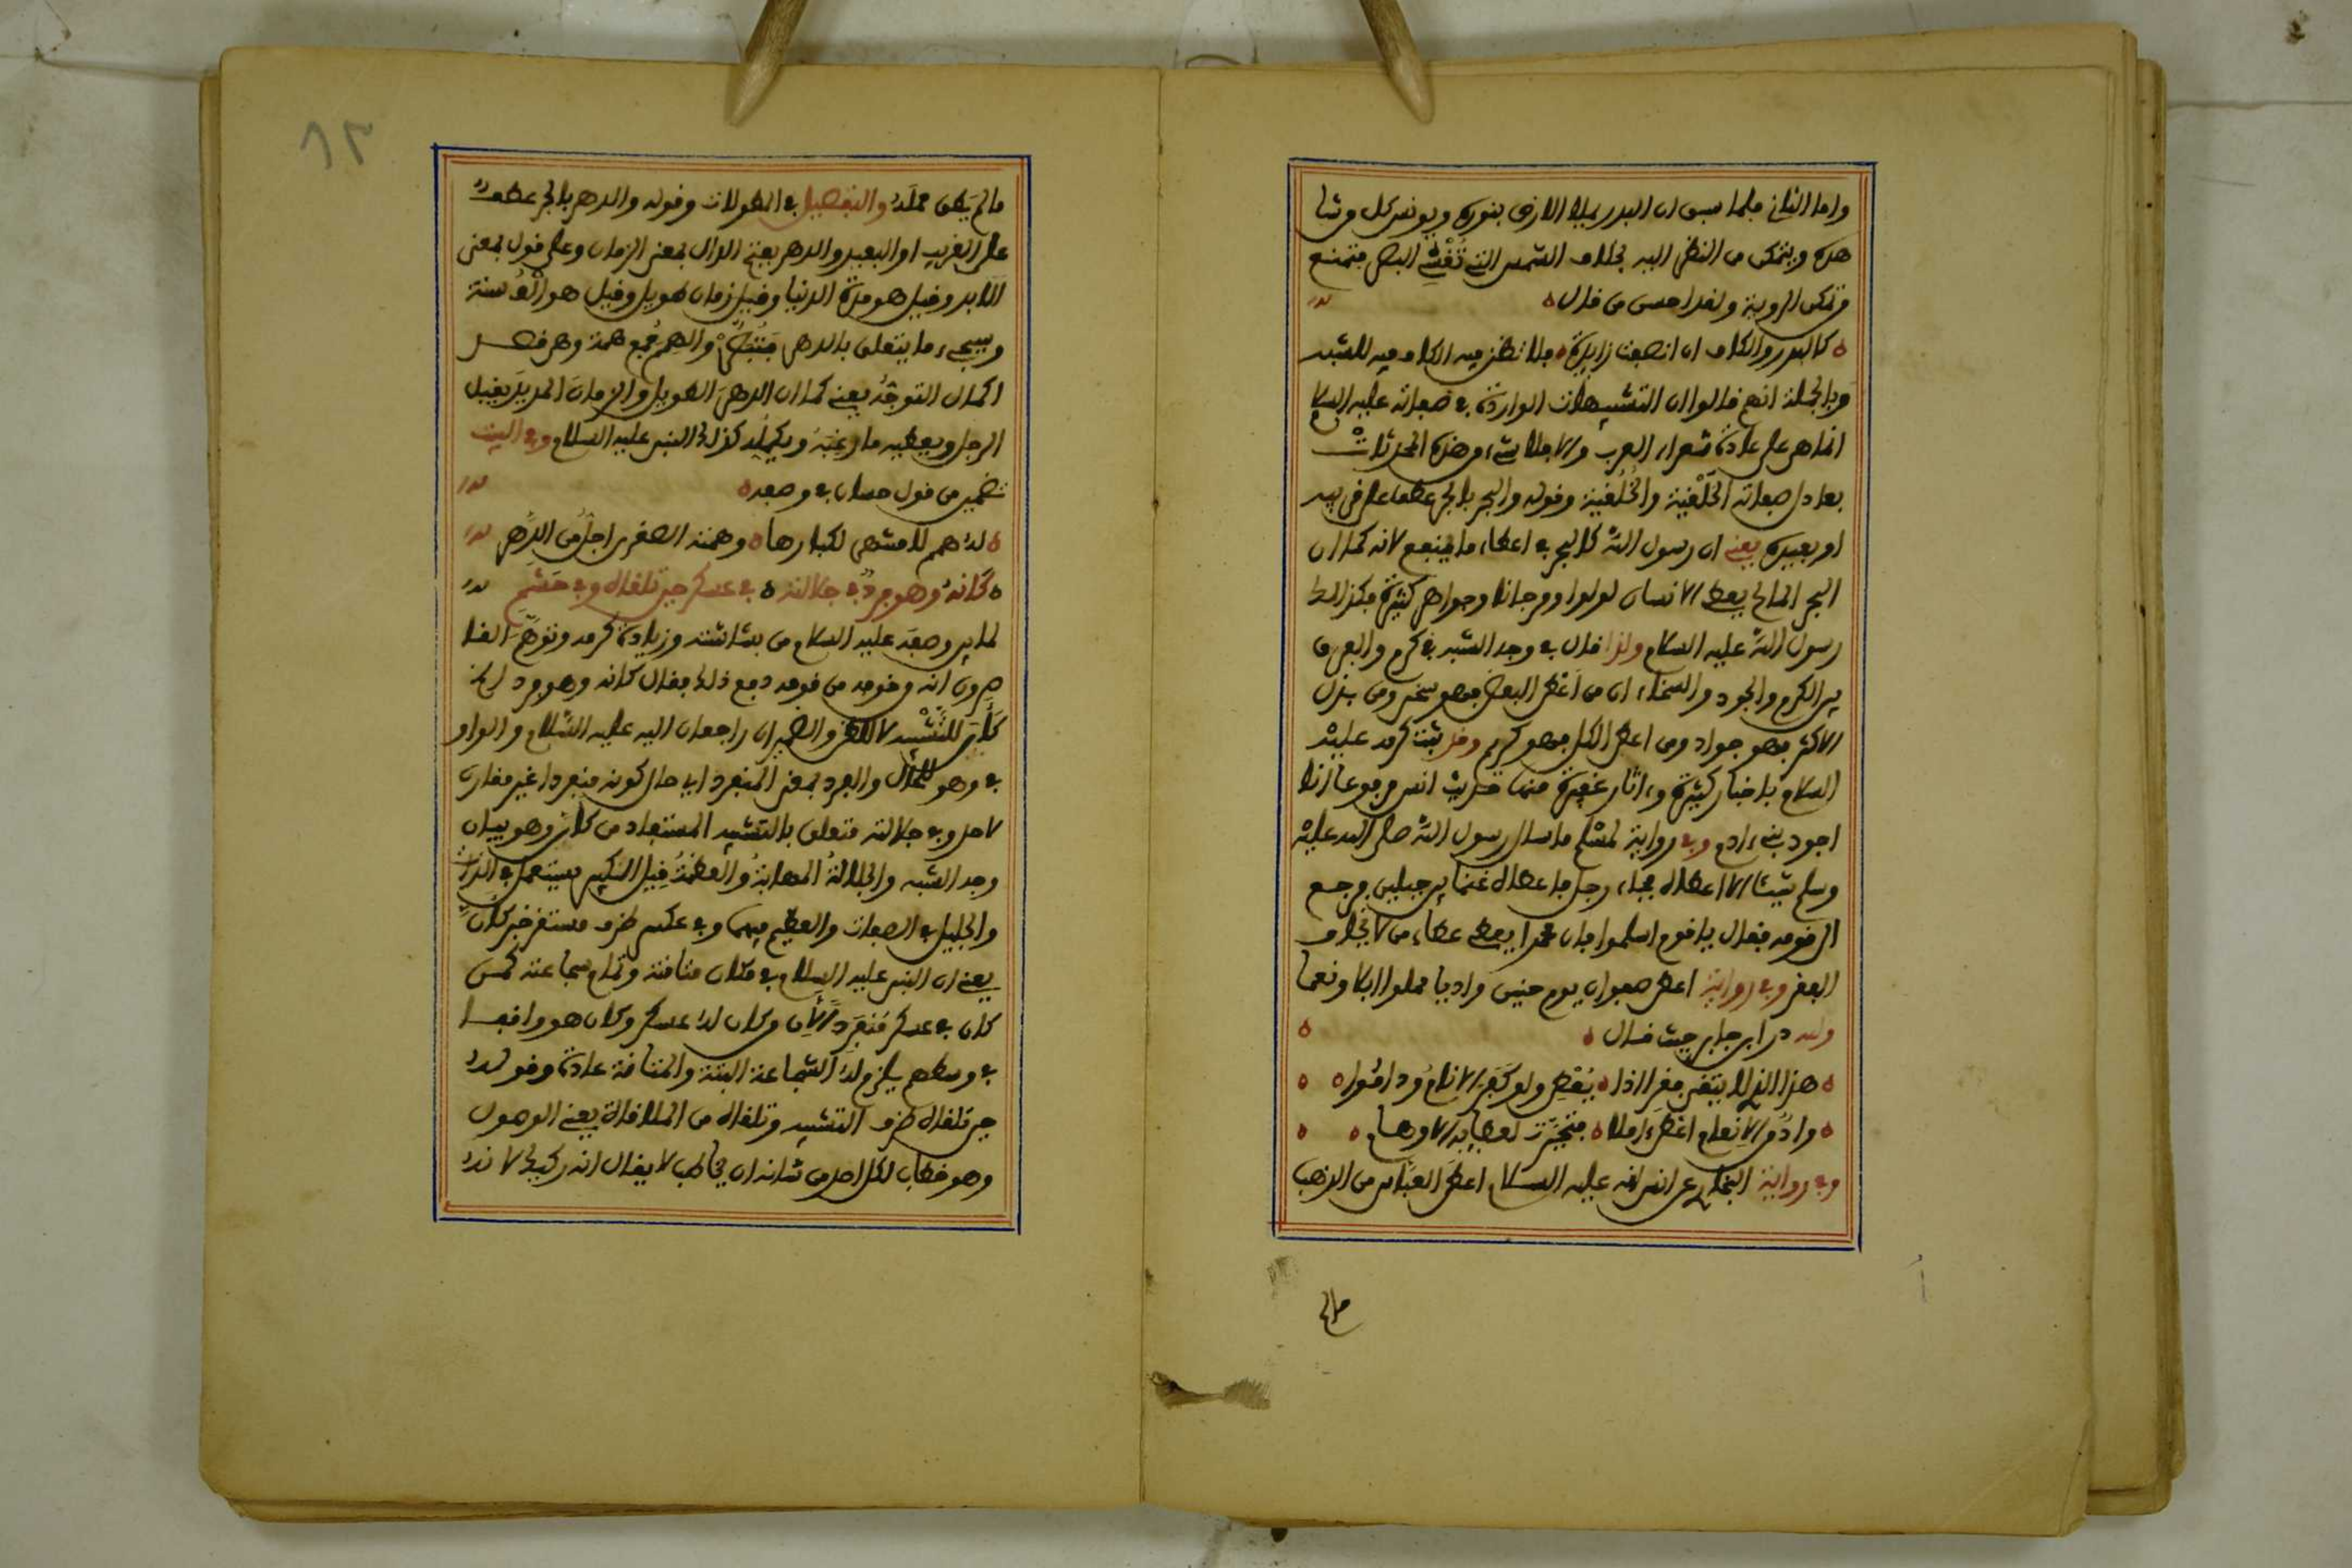 واما الثاني فلما سبق ان البدر يملا الارض بنوره ويونس كل من شا
هده ويتمكن من النظر اليه بخلاف الشمس التي تُغْشِي البصر فتمنع
من تمكن الروية ولقد احسن من قال
كالبدر والكاف ان انصفت زايدة فلا تظن فيه الكاف فيه للشبه
وبالجملة انهم قالوا ان التشبيهات الواردة في صفاته عليه السلام
انما هي على عادة شعراء العرب والا فلا شيء من هذه المحدثات
يعادل صفاته الخَلْقية والخُلُقية وقوله والبحر بالجر عطفا على قريبه
او بعيده يعني ان رسول الله كالبحر في اعطاء ما ينفع لانه كما ان
البحر المالح يعطي الانسان لولوا ومرجانا وجواهر كثيرة فكذالك
رسول الله عليه السلام ولذا قال في وجه الشبه في كرم والفرق
بين الكرم والجود والسخاء ان من اعطى البعض فهو سخي ومن بذل
الاكثر فهو جواد ومن اعطى الكل فهو كريم وقد ثبت كرمه عليه
السلام باخبار كثيرة واثار غفيرة منها حديث انس مرفوعا انا
اجود بني ادم وفي رواية لمسلم ما سال رسول الله صلى الله عليه
وسلم شيئا الا اعطاه فجاء رجل فاعطاه غنما بين جبلين فرجع
الى قومه فقال يا قوم اسلموا فان محمدا يعطي عطاء من لا يخاف
الفقر وفي رواية اعطى صفوان يوم حنين واديا مملوا ابلا ونعما
ولله در ابن جابر حيث قال
هذا الذي لا يتقي فقرا اذا يُعطي ولو كثر الانام وداموا
وادٍ من الانعام اعطى املا فتحيرت لعطايه الاوهام
وفي رواية البخاري عن انس انه عليه السلام اعطى العباس من الذهب
مالم
٦٢
مالم يطق حمله والتفصيل في المطولات وقوله والدهر بالجر عطف
على القريب او البعيد والدهر بفتح الدال بمعنى الزمان وعلى قول بمعنى
الابد وقيل هو مدة الدنيا وقيل زمان طويل وقيل هو الف سنة
وسيجيء ما يتعلق بالدهر والهمم جمع همة وهو قصد
اكمال التوجه يعني كما ان الدهر الطويل والزمان المديد يقبل
الرجل ويعطيه ما رغبه ويكمله كذلك النبي عليه السلام وفي البيت
تضمين من قول حسان في وصفه
له همم لا منتهى لكبارها وهمته الصغرى اجل من الدهر
كانه وهو فرد في جلالته في عسكر حين تلقاه وفي حشم
لما بين وصفه عليه السلام من بشاشته وزيادة كرمه وتوهم القا
صرون انه وقومه من قومه دفع ذلك فقال كانه وهو فرد اي
كأن للتشبيه لا للظن والضميران راجعان اليه عليه السلام والواو
في وهو للحال والفرد بمعنى المنفرد اي حال كونه منفردا غير مقارن
لاحد وفي جلالته متعلق بالتشبيه المستفاد من كان وهو بيان
وجه الشبه والجلالة المهابة والعظمة قيل الكبير يستعمل في الذات
والجليل في الصفات والعظيم فيهما وفي عسكر ظرف مستقر خبر كان
يعني ان النبي عليه السلام في مكان متانته وتمام شجاعته كمن
كان في عسكر منفرد لان من كان له عسكر وكان هو واقفا
في وسطهم يلزم له الشجاعة البتة والمتانة عادة وقوله
حين تلقاه ظرف التشبيه وتلقاه من الملاقاة يعني الوصول
وهو خطاب لكل احد من شانه ان يخاطب لا يقال انه ركيك لانه